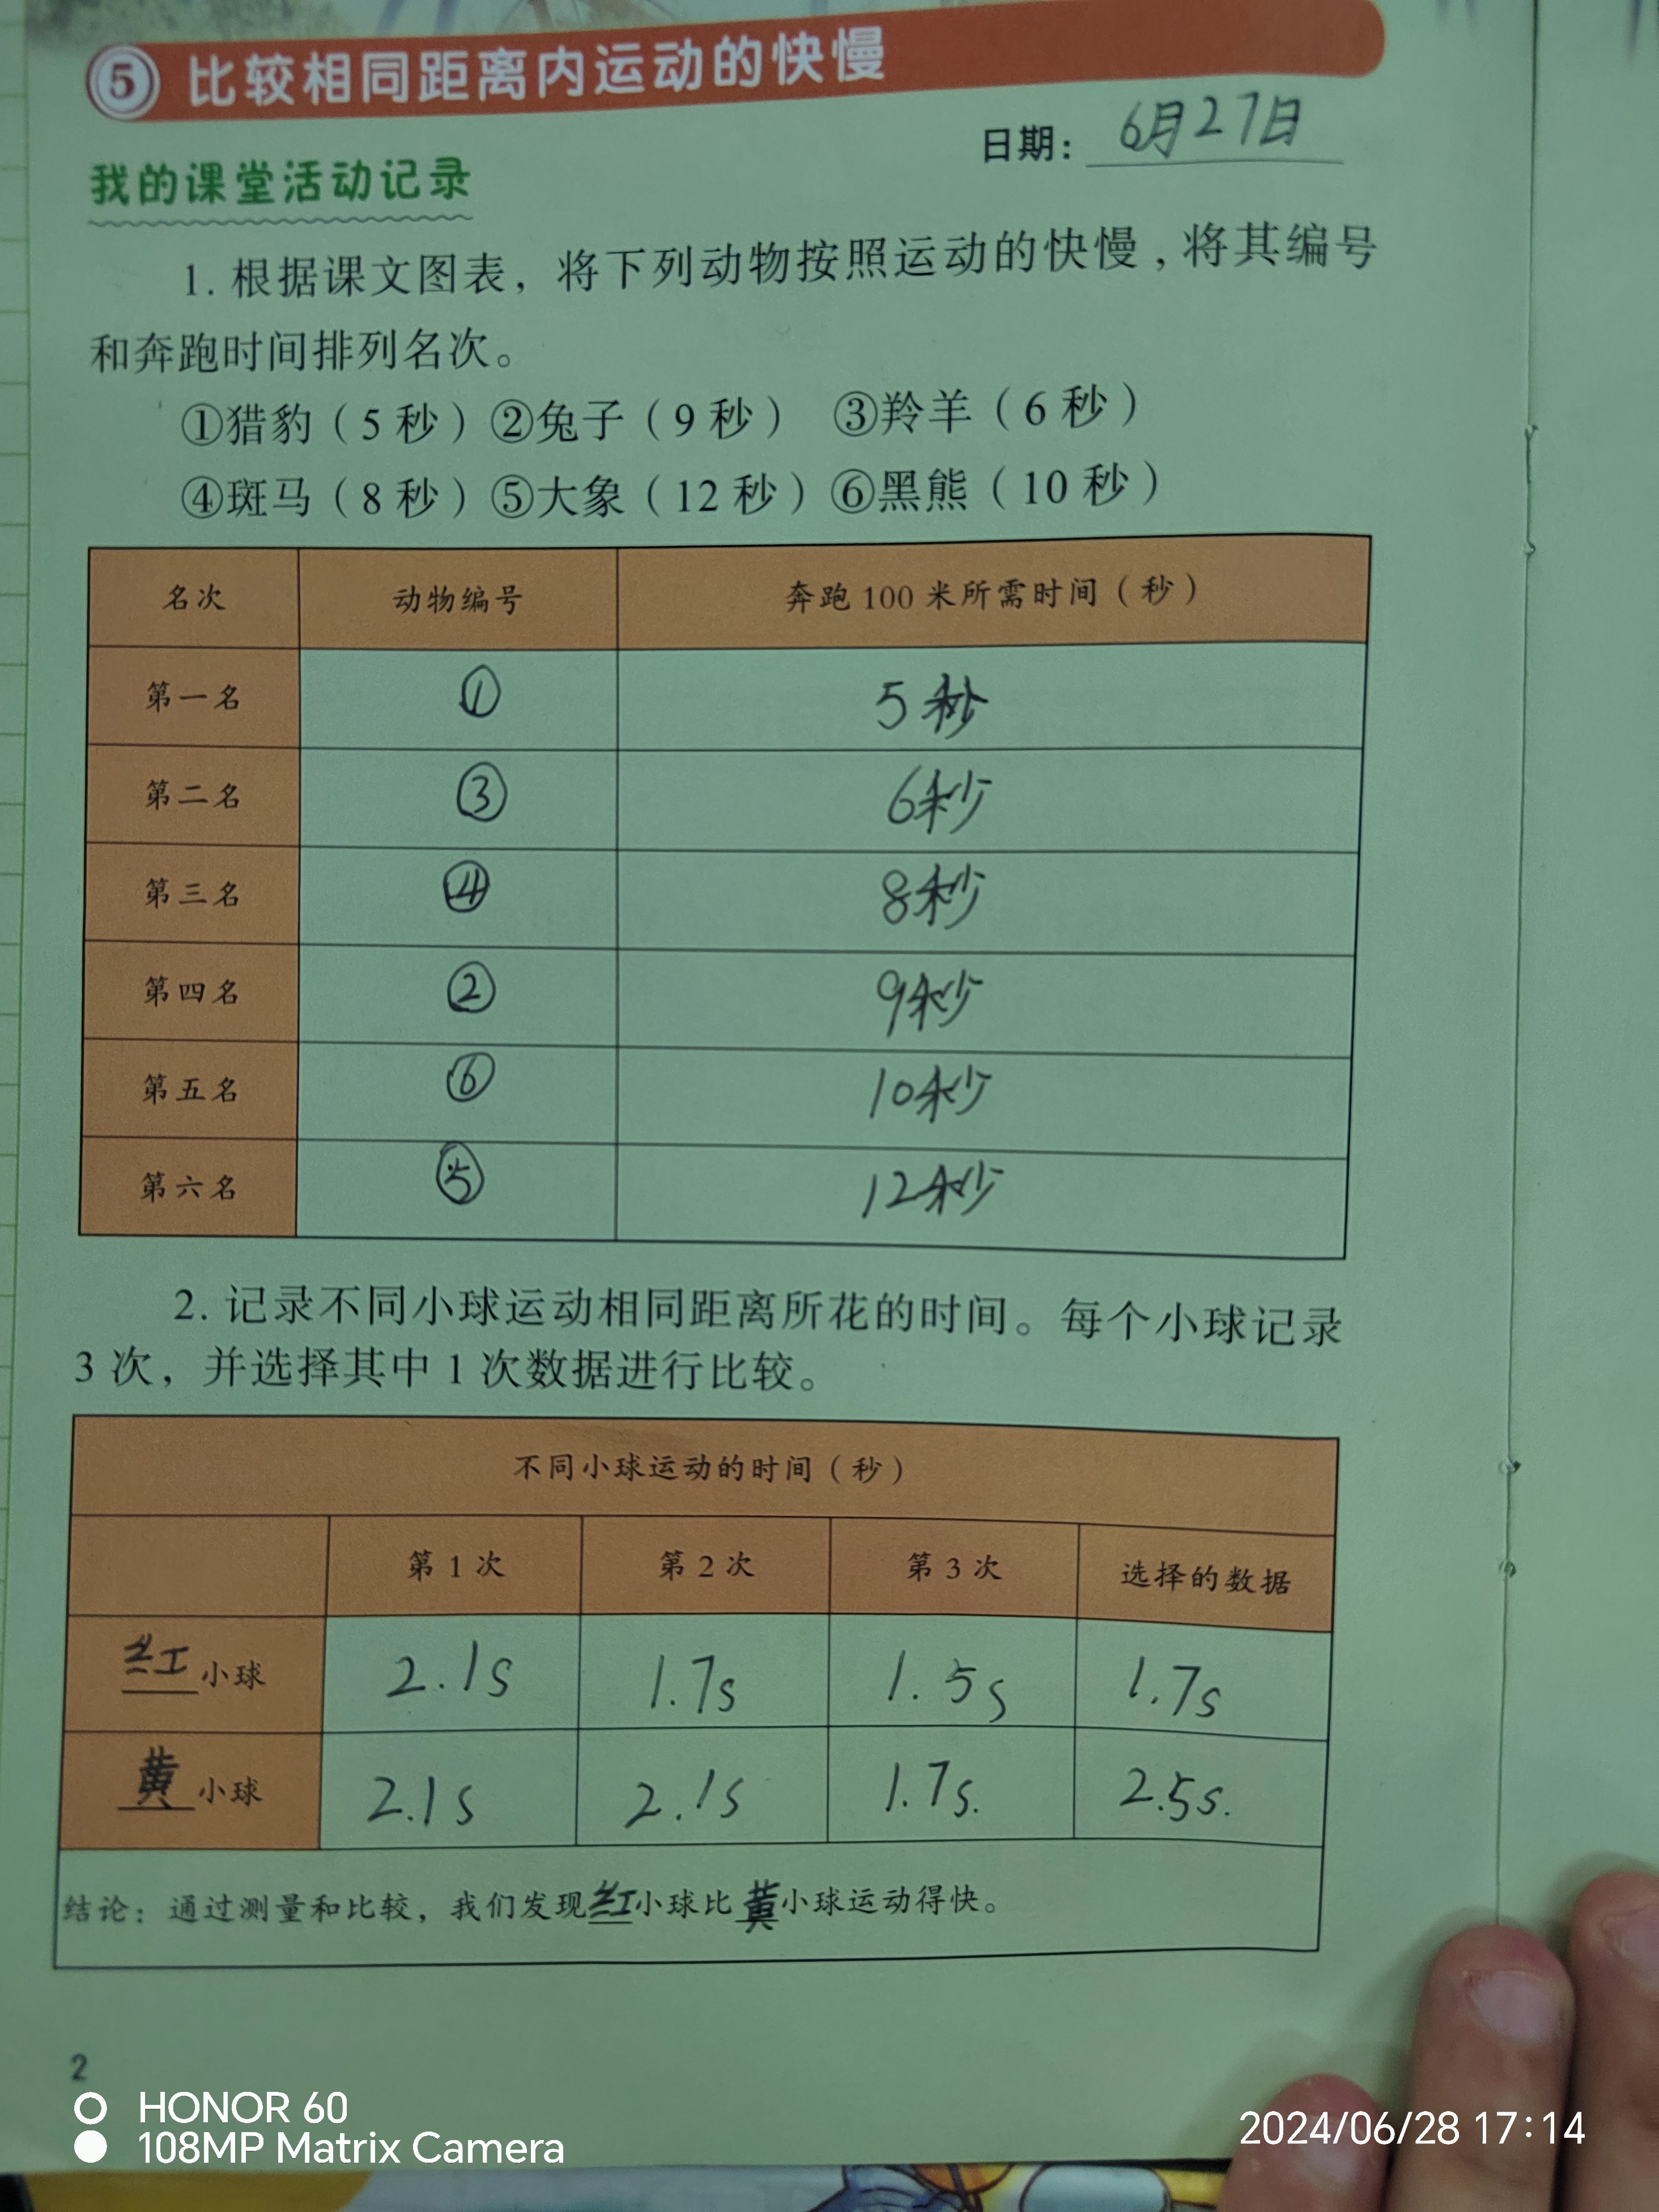 ⑤ 比较相同距离内运动的快慢
日期：6月27日
我的课堂活动记录
1. 根据课文图表，将下列动物按照运动的快慢，将其编号
和奔跑时间排列名次。
①猎豹（5 秒）②兔子（9 秒） ③羚羊（6 秒）
④斑马（8 秒）⑤大象（12 秒）⑥黑熊（10 秒）
名次 动物编号 奔跑 100 米所需时间（秒）
第一名 ① 5秒
第二名 ③ 6秒
第三名 ④ 8秒
第四名 ② 9秒
第五名 ⑥ 10秒
第六名 ⑤ 12秒
2. 记录不同小球运动相同距离所花的时间。每个小球记录
3 次，并选择其中 1 次数据进行比较。
不同小球运动的时间（秒）
第 1 次 第 2 次 第 3 次 选择的数据
红小球 2.1s 1.7s 1.5s 1.7s
黄小球 2.1s 2.1s 1.7s. 2.5s.
结论：通过测量和比较，我们发现红小球比黄小球运动得快。
2
HONOR 60
108MP Matrix Camera
2024/06/28 17:14